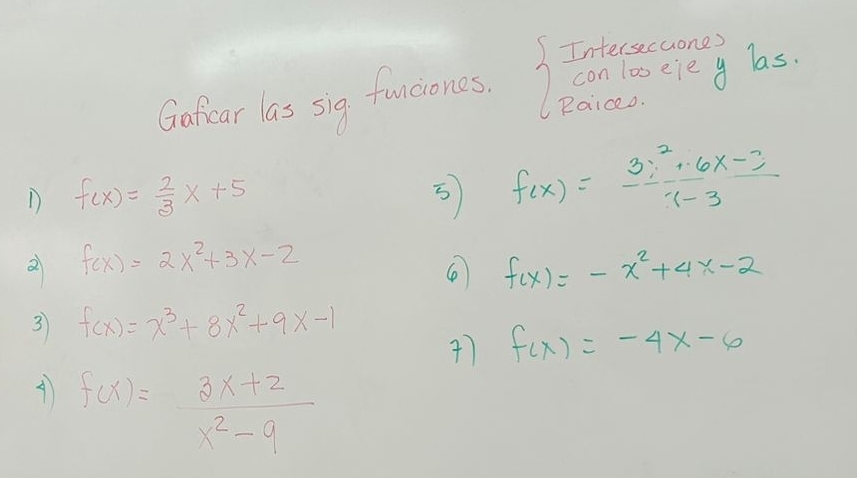 Graficar las sig. funciones.
{ Intersecciones
con los eje y las.
Raices.
1) f(x) = 2/3 x + 5
2) f(x) = 2x² + 3x - 2
3) f(x) = x³ + 8x² + 9x - 1
4) f(x) = 3x + 2
x² - 9
5) f(x) = 3 ² + 6x -
x - 3
6) f(x) = - x² + 4x - 2
7) f(x) = - 4x - 6